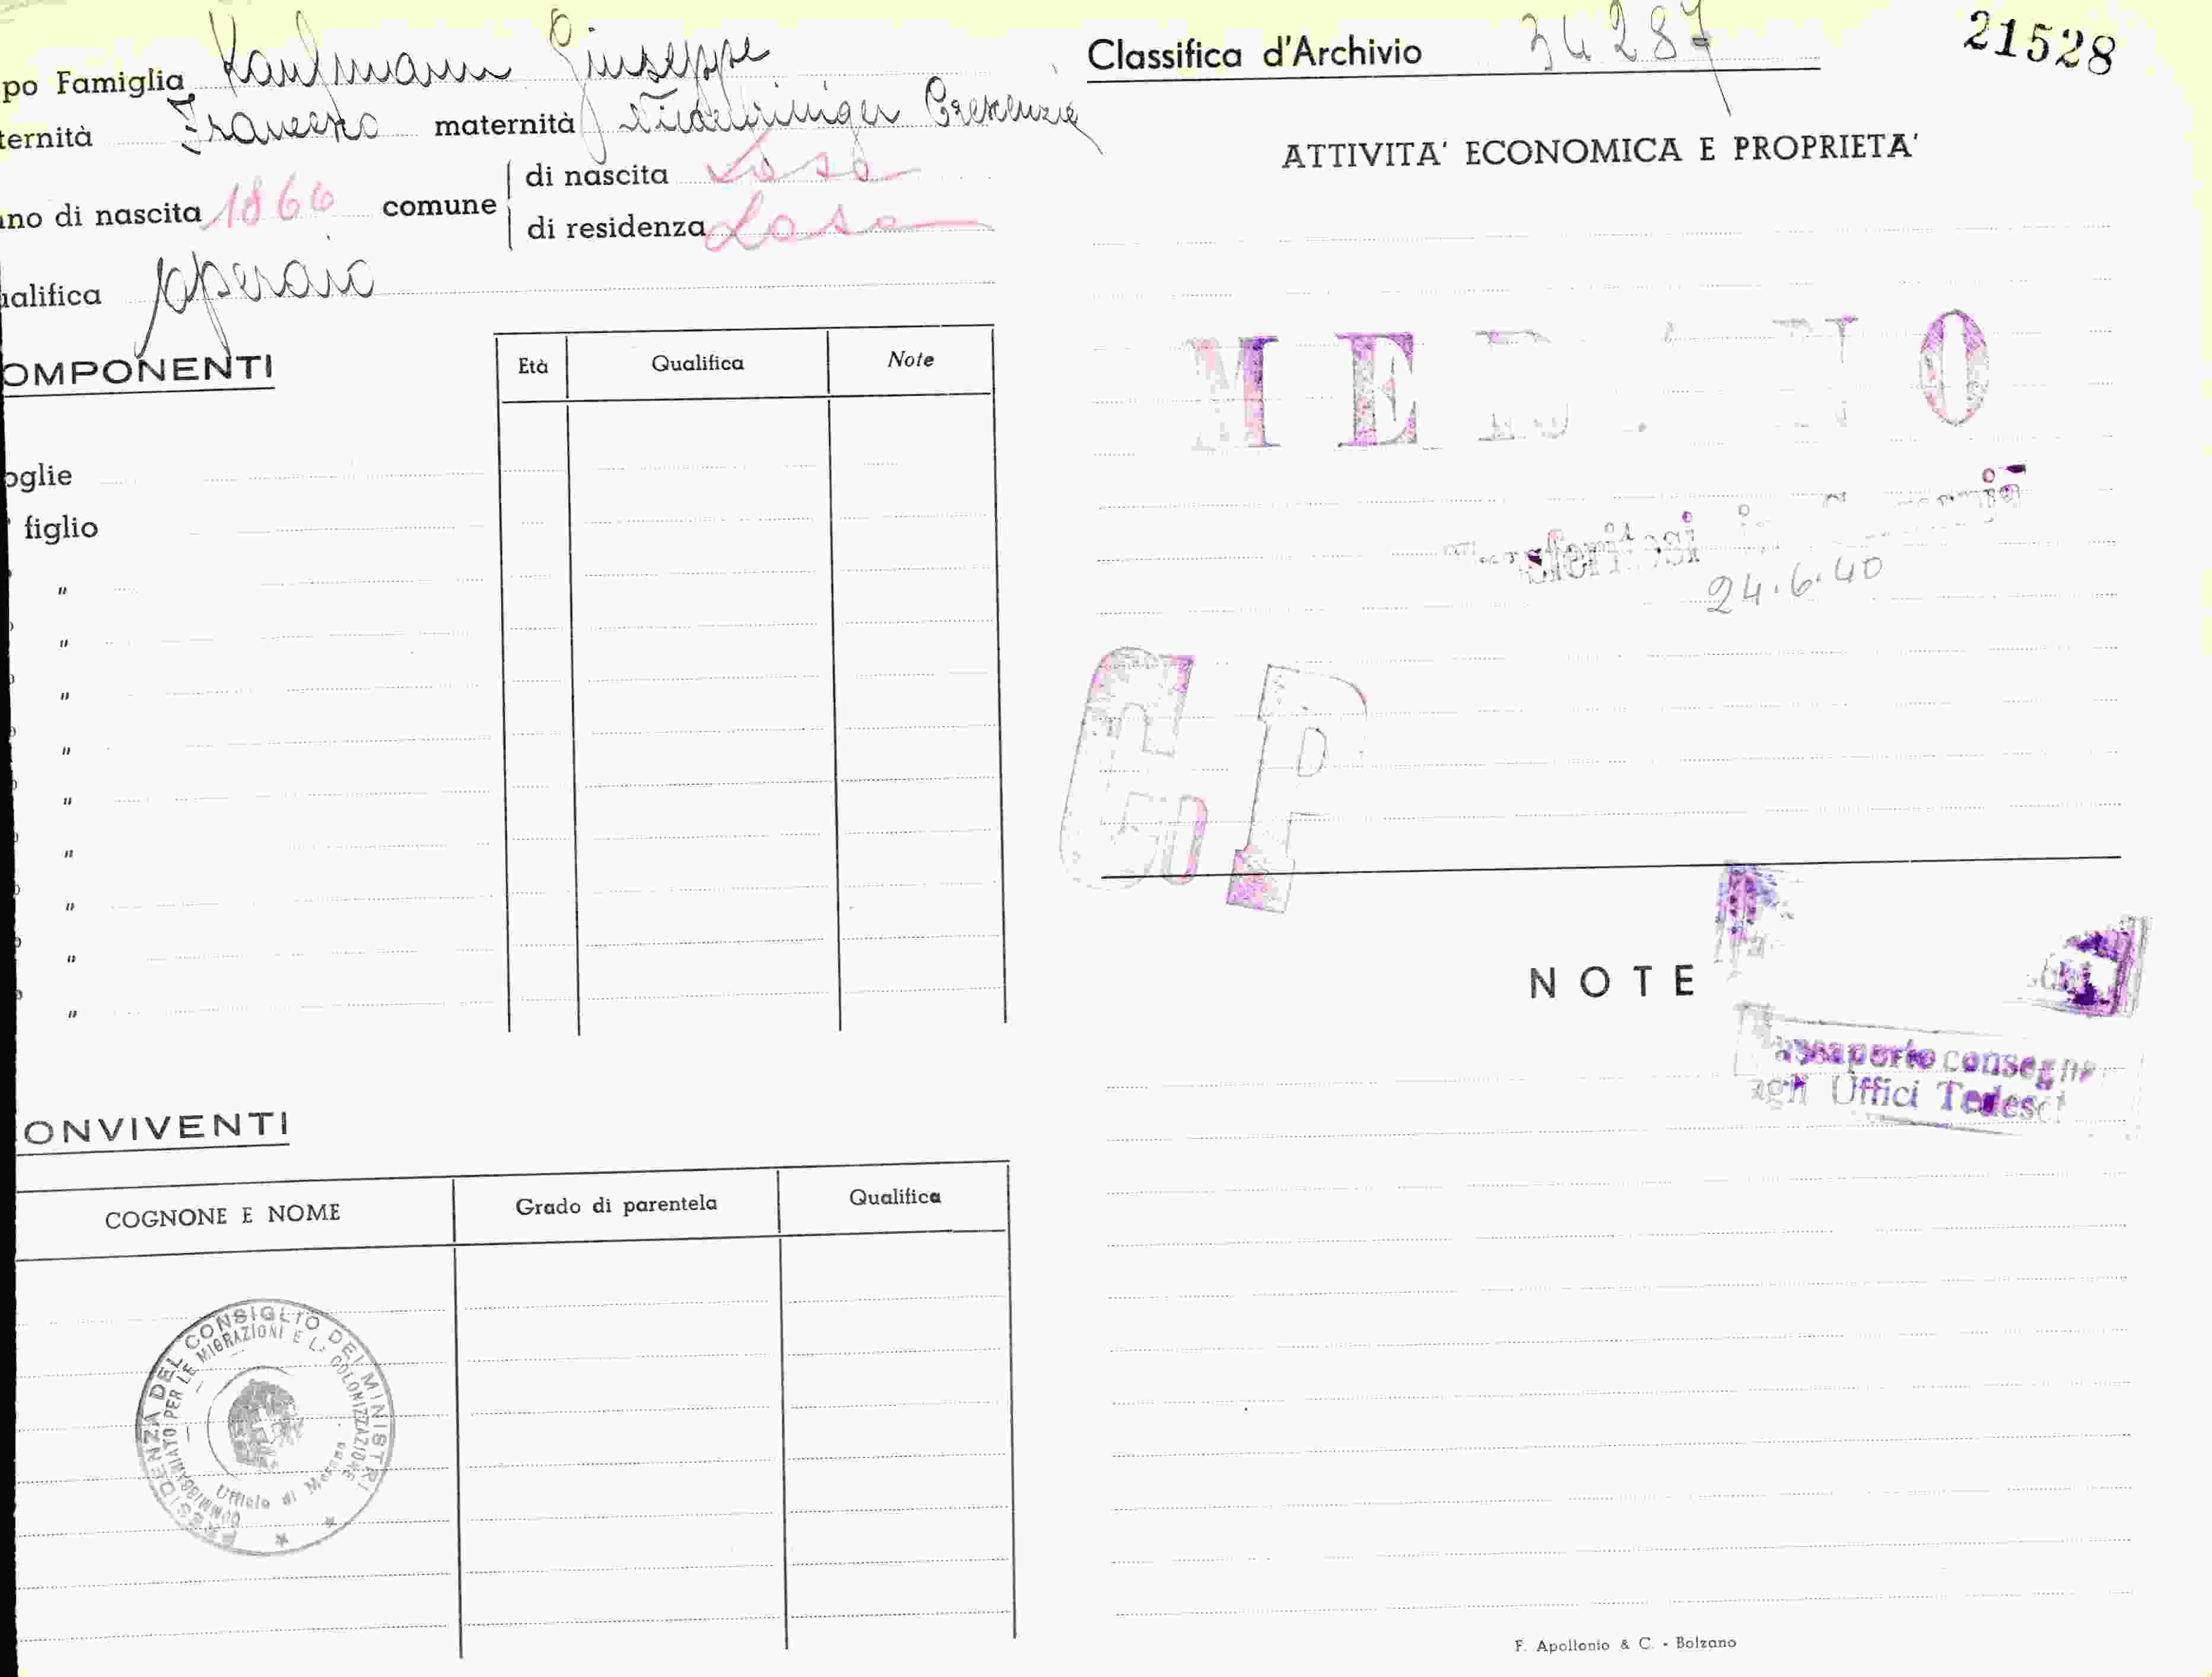 po Famiglia Kaufmann Giuseppe
ternità Francesco maternità Crescenzia
no di nascita 1866 comune
di nascita Lasa
di residenza Lasa
ualifica operaio
OMPONENTI
Età Qualifica Note
oglie
figlio
"
"
"
"
"
"
"
"
"
ONVIVENTI
COGNONE E NOME Grado di parentela Qualifica
PRESIDENZA DEL CONSIGLIO DEI MINISTRI
COMMISSARIATO PER LE MIGRAZIONI E LA COLONIZZAZIONE
Ufficio di Merano
Classifica d'Archivio 34287 21528
ATTIVITA' ECONOMICA E PROPRIETA'
24.6.40
NOTE
assaporto consegn
agli Uffici Tedesc
F. Apollonio & C. - Bolzano